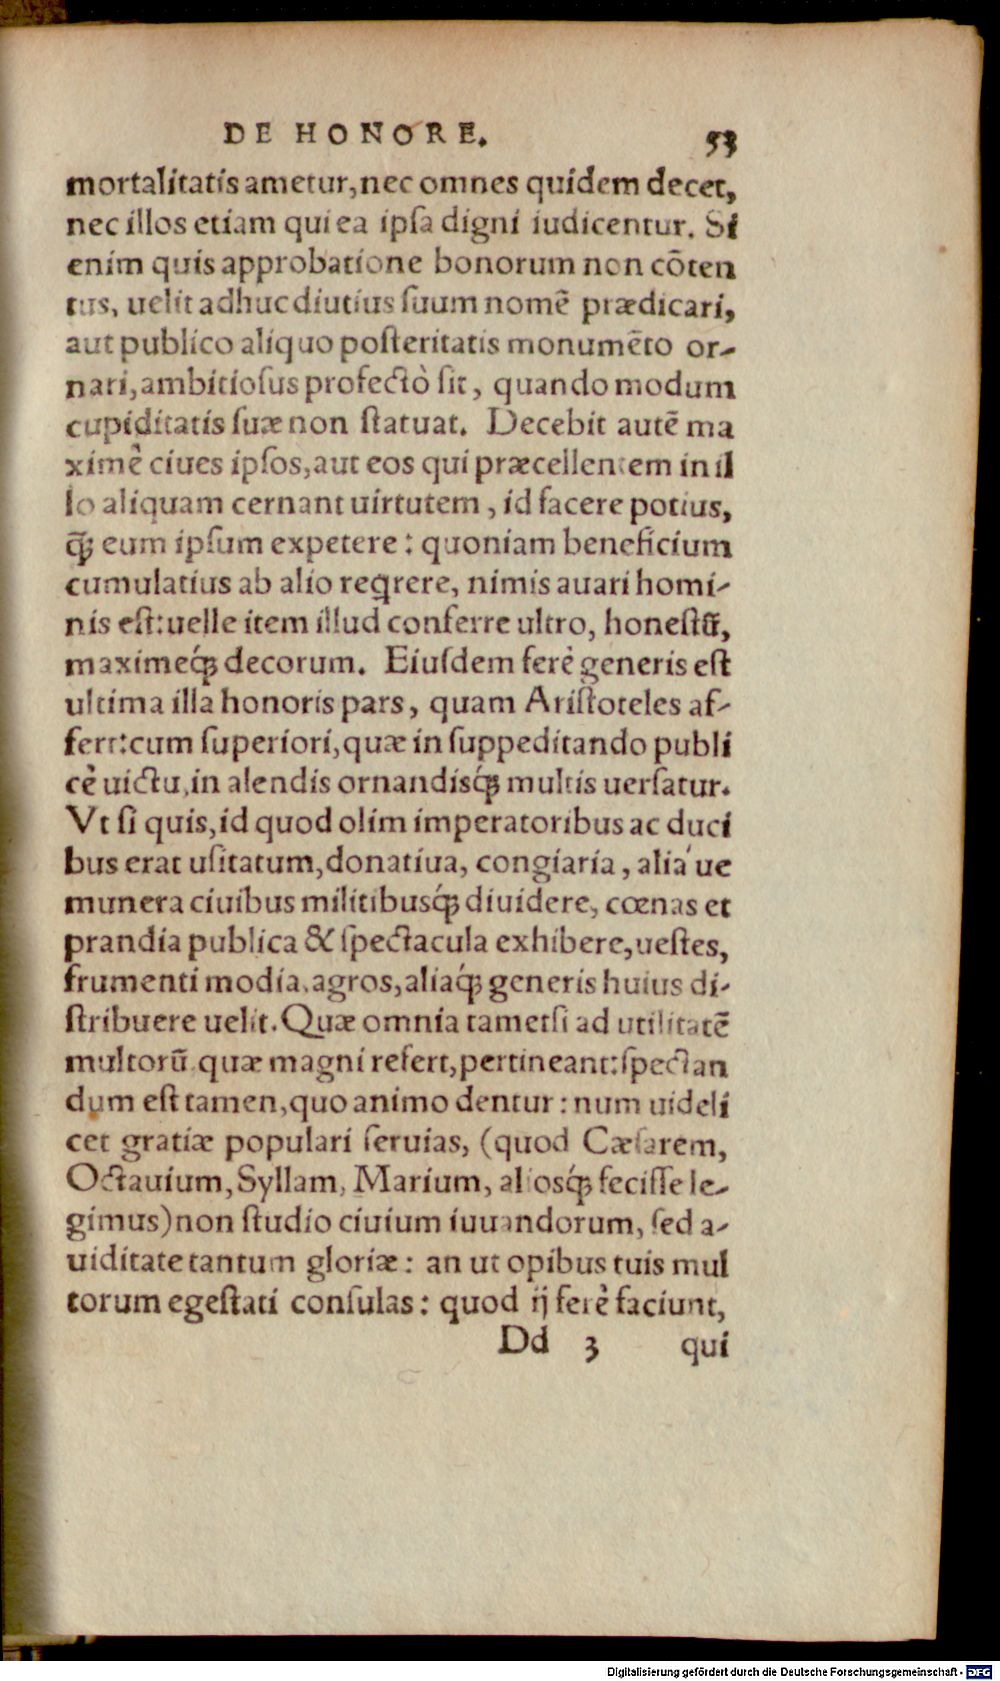 DE HONORE. 53
mortalitatis ametur, nec omnes quidem decet,
nec illos etiam qui ea ipſa digni iudicentur. Si
enim quis approbatione bonorum non cōten
tus, uelit adhuc diutius ſuum nomē prædicari,
aut publico aliquo poſteritatis monumēto or-
nari, ambitioſus profectò ſit, quando modum
cupiditatis ſuæ non ſtatuat. Decebit autē ma
ximè ciues ipſos, aut eos qui præcellentem in il
lo aliquam cernant uirtutem, id facere potius,
q̄ꝫ eum ipſum expetere: quoniam beneficium
cumulatius ab alio reꝗrere, nimis auari homi-
nis eſt: uelle item illud conferre ultro, honeſtū,
maximeq́ꝫ decorum. Eiuſdem ferè generis eſt
ultima illa honoris pars, quam Ariſtoteles af-
fert: cum ſuperiori, quæ in ſuppeditando publi
cè uictu, in alendis ornandisq́ꝫ multis uerſatur.
Vt ſi quis, id quod olim imperatoribus ac duci
bus erat uſitatum, donatiua, congiaria, alia ́ue
munera ciuibus militibusq́ꝫ diuidere, cœnas et
prandia publica & ſpectacula exhibere, ueſtes,
frumenti modia, agros, aliaq́ꝫ generis huius di-
ſtribuere uelit. Quæ omnia tametſi ad utilitatē
multorū quæ magni refert, pertineant: ſpectan
dum eſt tamen, quo animo dentur: num uideli
cet gratiæ populari ſeruias, (quod Cæſarem,
Octauium, Syllam, Marium, aliosq́ꝫ feciſſe le-
gimus) non ſtudio ciuium iuuandorum, ſed a-
uiditate tantum gloriæ: an ut opibus tuis mul
torum egeſtati conſulas: quod ij ferè faciunt,
Dd 3 qui
Digitalisierung gefördert durch die Deutsche Forschungsgemeinschaft - DFG